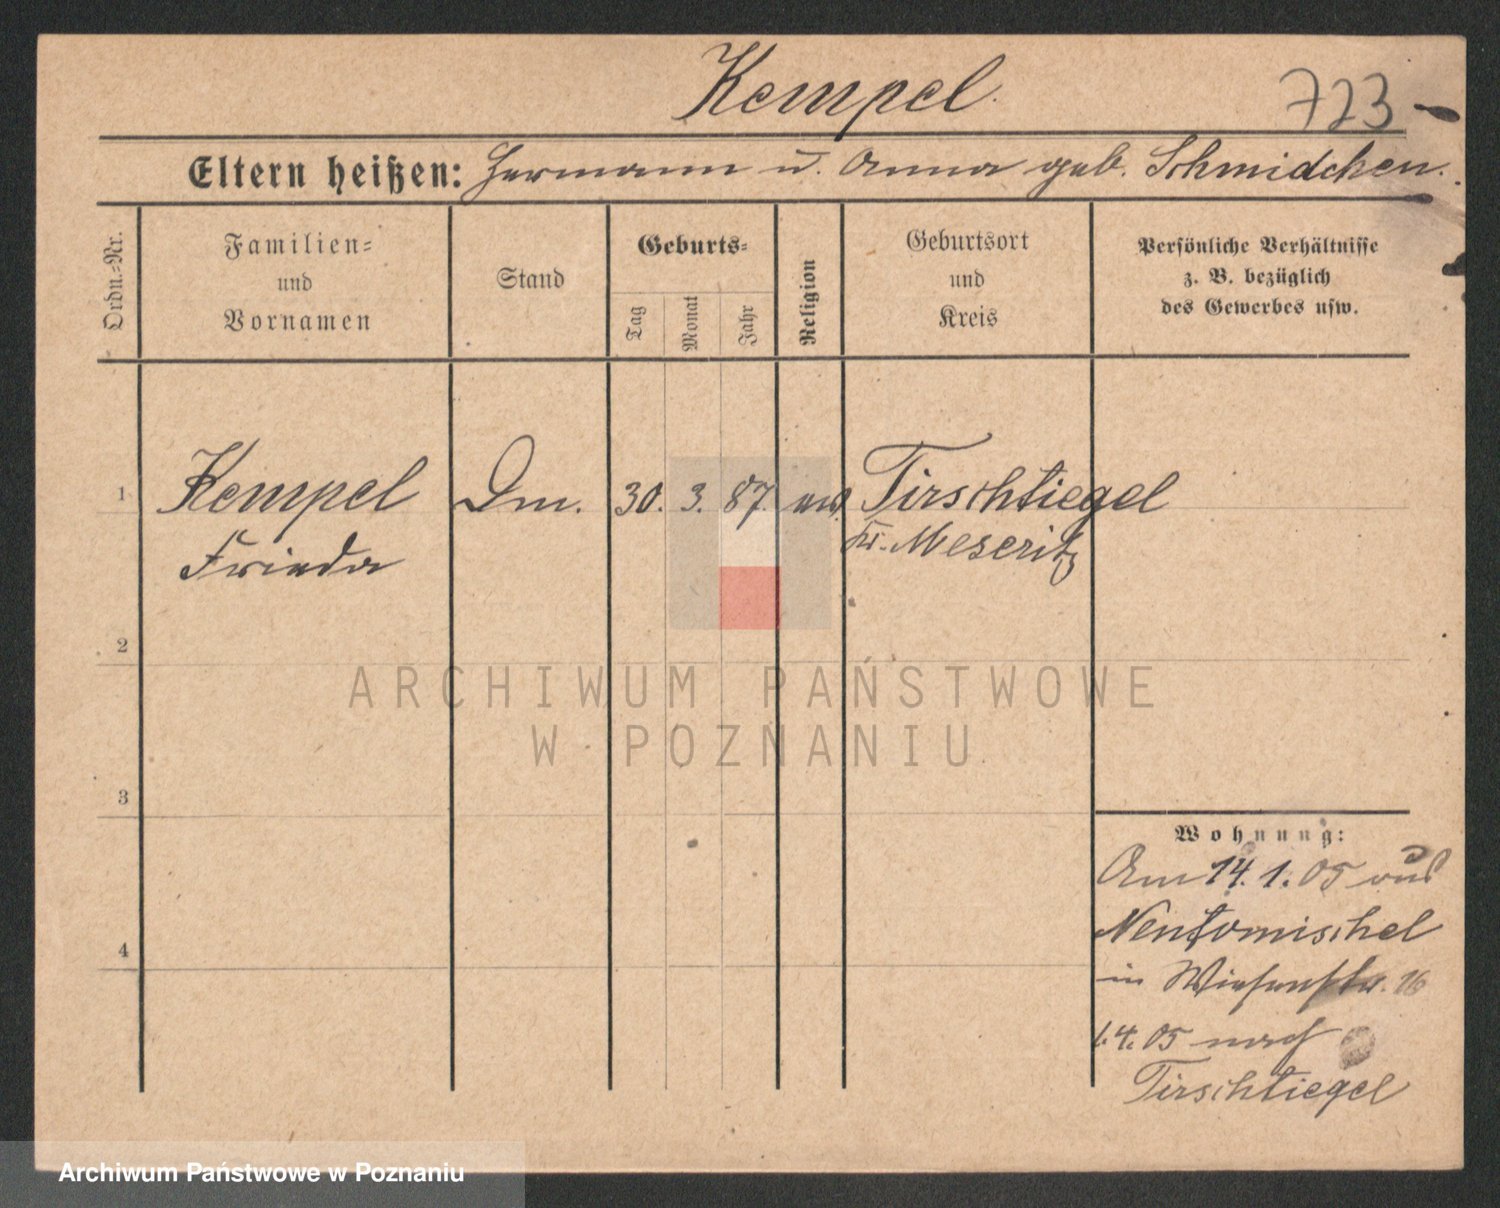 Kempel.
723
Eltern heißen: Hermann u. Anna geb. Schmidchen.
Ordn.=Nr.
Familien=
und
Vornamen
Stand
Geburts=
Tag
Monat
Jahr
Religion
Geburtsort
und
Kreis
Persönliche Verhältnisse
z. B. bezüglich
des Gewerbes usw.
1 Kempel Dm. 30. 3. 87. ew. Tirschtiegel
Frieda Kr. Meseritz
2
3
4
Wohnung:
Am 14.1.05 aus
Neutomischel
in Wiesenstr. 16
1.4.05 nach
Tirschtiegel
ARCHIWUM PAŃSTWOWE
W POZNANIU
Archiwum Państwowe w Poznaniu